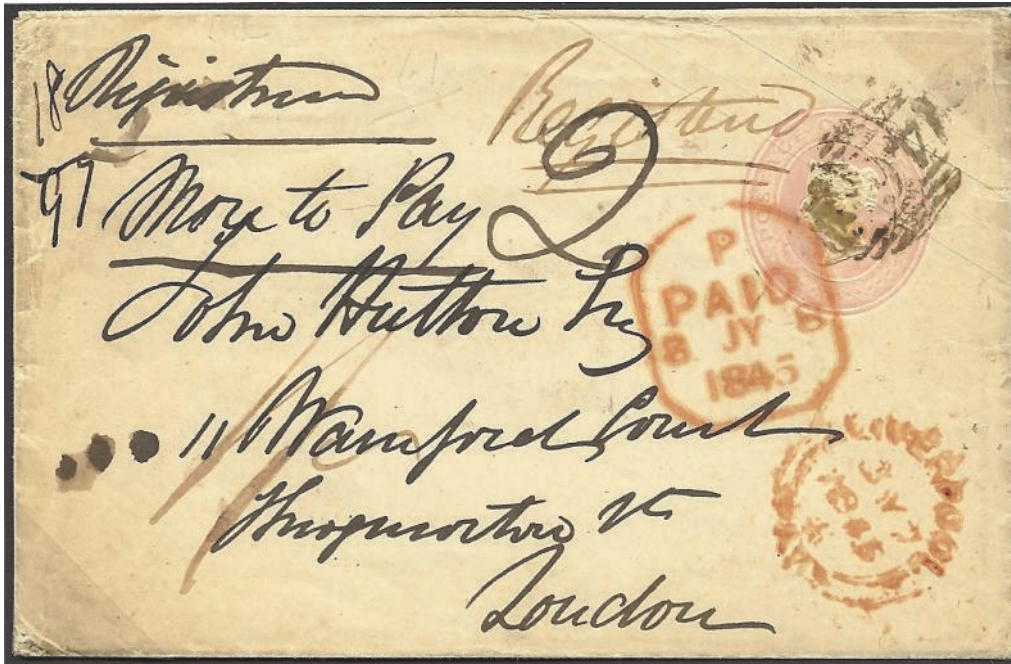 18 Registered
Registered
97
More to Pay 2
John Hutton Esq
11 Warnford Court
Throgmorton St
London
P
PAID
8 JY 8
1845
LIVERPOOL
JY 7
1845